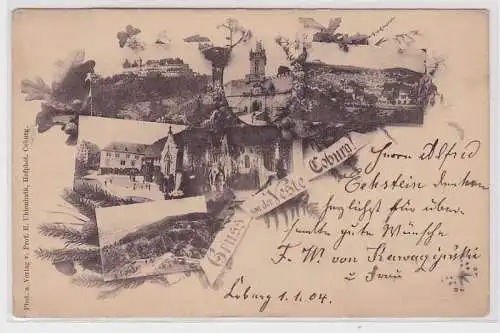 Phot. u. Verlag v. Prof. E. Uhlenhuth, Hofphot. Coburg.
Gruss von der Veste Coburg!
Herrn Alfred
Eckstein danken
herzlichst für über-
sandte gute Wünsche
F. W. von
u Frau
Coburg 1.1.04.